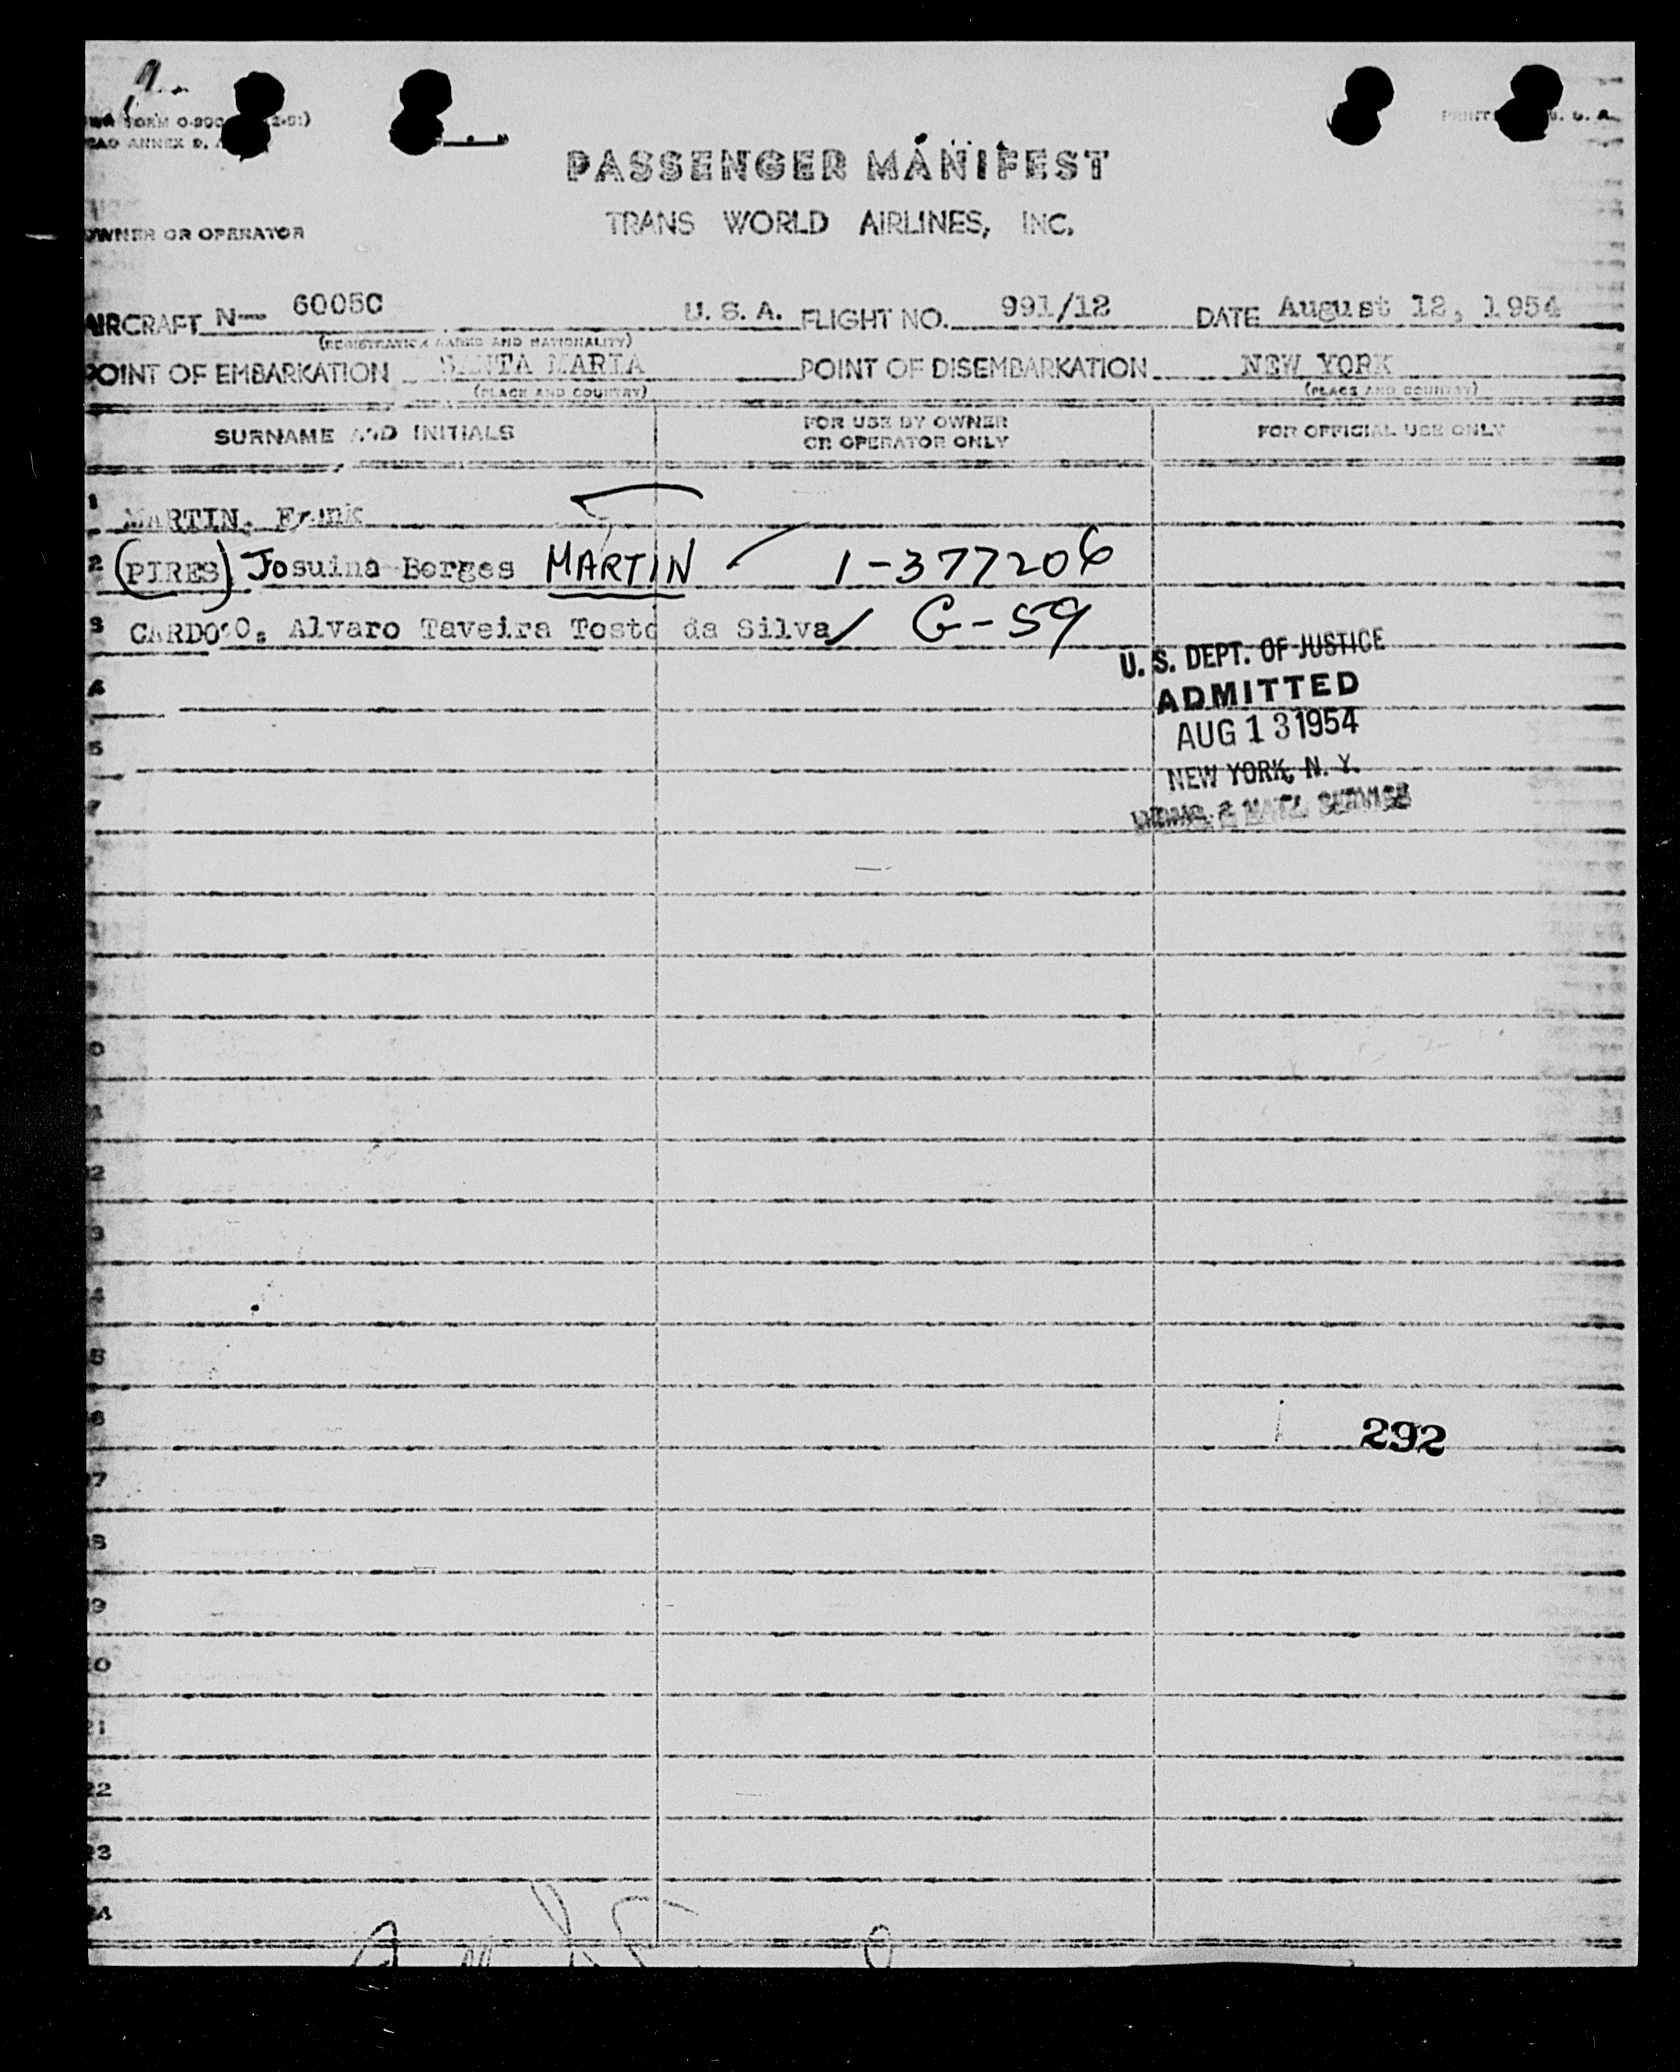 PASSENGER MANIFEST
TRANS WORLD AIRLINES, INC.
OWNER OR OPERATOR
AIRCRAFT N— 6005C U. S. A. FLIGHT NO. 991/12 DATE August 12, 1954
(REGISTRATION MARKS AND NATIONALITY)
POINT OF EMBARKATION SANTA MARIA POINT OF DISEMBARKATION NEW YORK
(PLACE AND COUNTRY) (PLACE AND COUNTRY)
SURNAME AND INITIALS FOR USE BY OWNER OR OPERATOR ONLY FOR OFFICIAL USE ONLY
1 MARTIN, Frank
2 (PIRES) Josuina Borges MARTIN 1-377206
3 CARDOSO, Alvaro Taveira Toste da Silva / G-59
U. S. DEPT. OF JUSTICE
4
ADMITTED
AUG 13 1954
5
NEW YORK, N. Y.
IMMIG. & NATZ. SERVICE
7
0
2
3
4
5
6
292
7
8
9
20
21
22
23
24